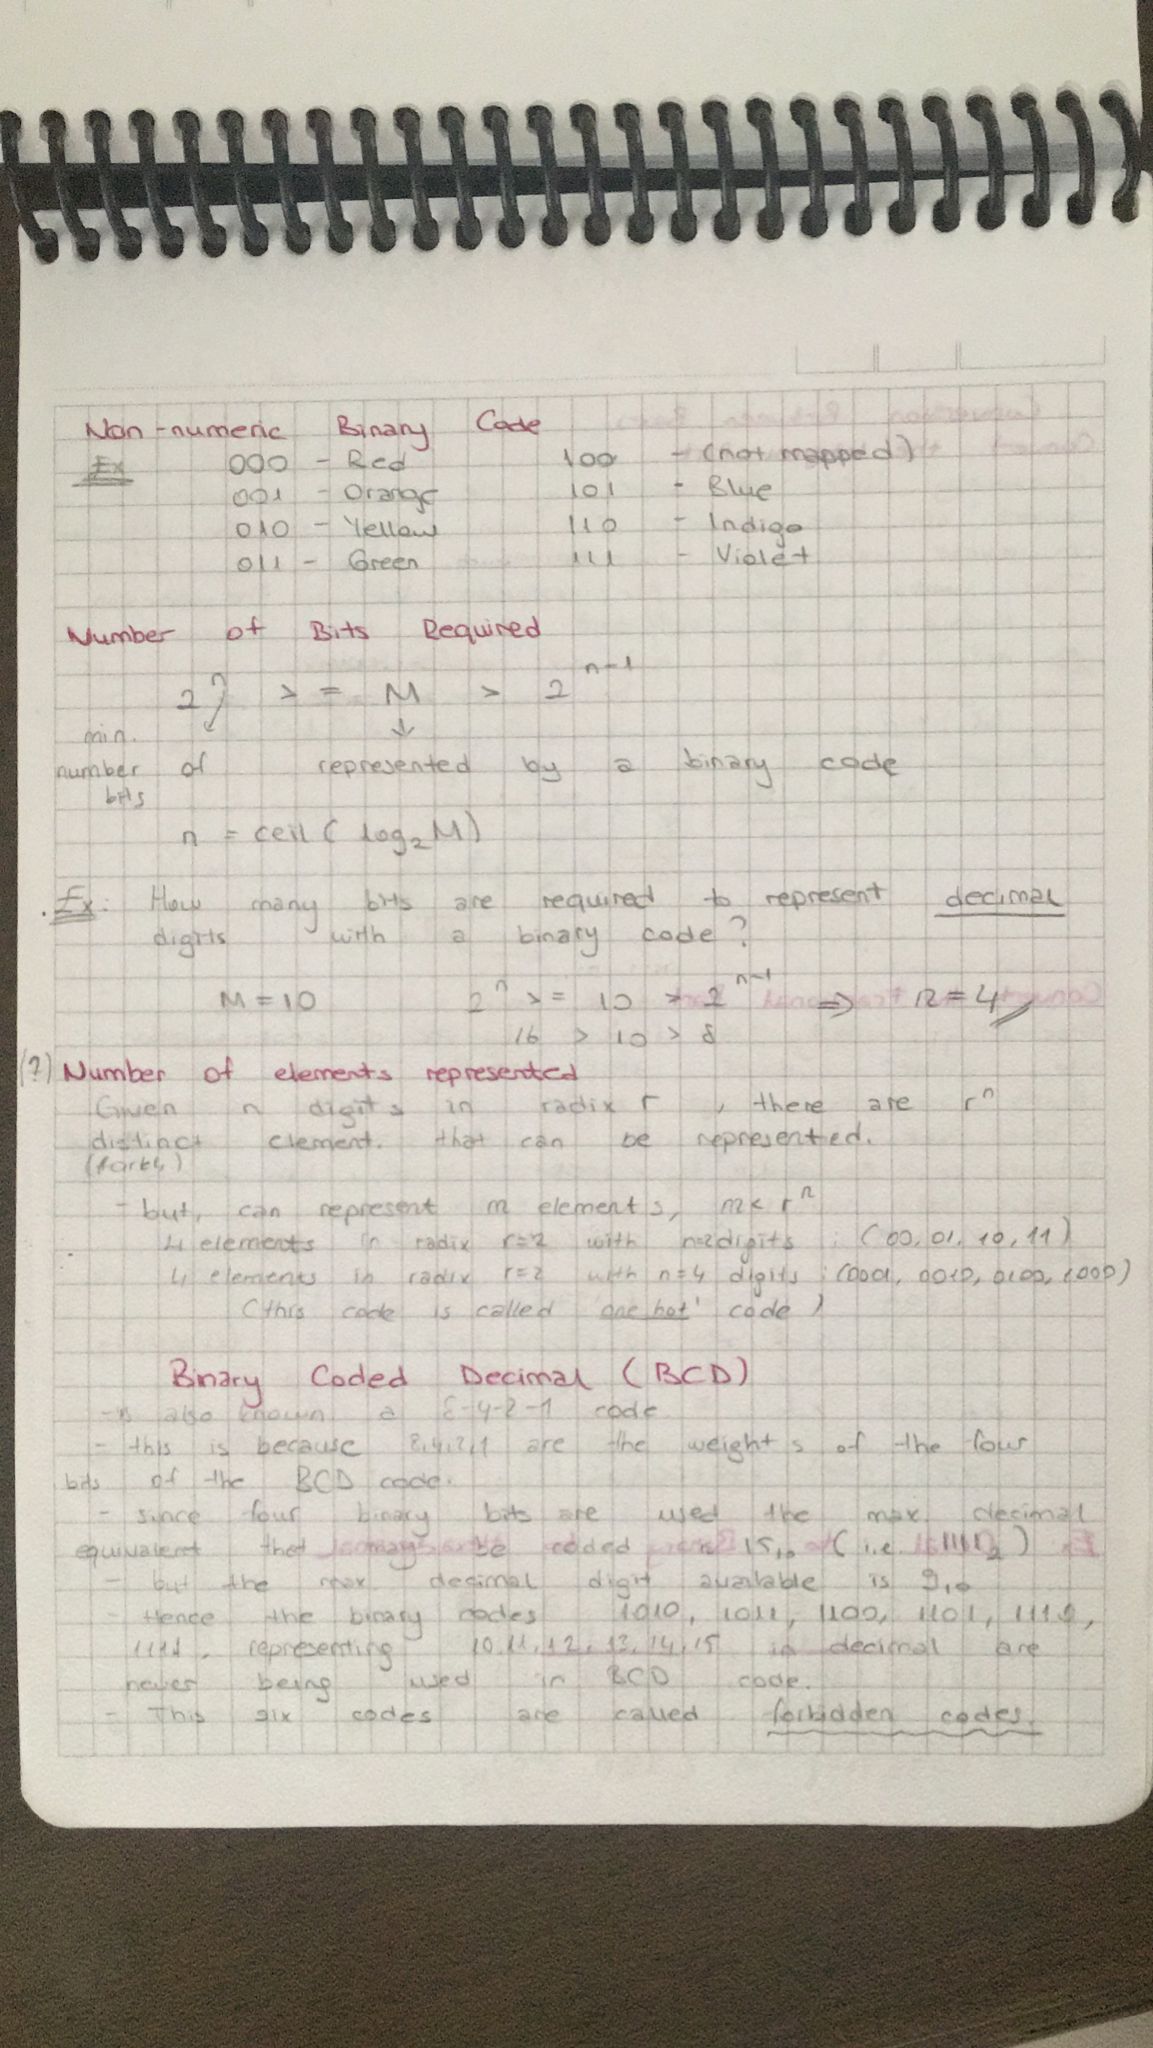 Non-numeric Binary Code
Ex 000 - Red 100 - (not mapped)
001 - Orange 101 - Blue
010 - Yellow 110 - Indigo
011 - Green 111 - Violet
Number of Bits Required
2^n >= M > 2^n-1
min. number of bits
represented by a binary code
n = ceil ( log₂M)
Ex: How many bits are required to represent decimal
digits with a binary code?
M = 10 2^n >= 10 > 2^n-1 => n = 4
16 > 10 > 8
(?) Number of elements represented
Given n digits in radix r, there are r^n
distinct element. that can be represented.
(farklı)
- but, can represent m elements, m < r^n
4 elements in radix r=2 with n=2 digits : (00, 01, 10, 11)
4 elements in radix r=2 with n=4 digits : (0001, 0010, 0100, 1000)
(this code is called 'one hot' code)
Binary Coded Decimal (BCD)
- is also known a 8-4-2-1 code
- this is because 8,4,2,1 are the weights of the four
bits of the BCD code.
- since four binary bits are used the max. decimal
equivalent that may be coded is 15₁₀ (i.e. 1111₂)
- but the max decimal digit available is 9₁₀
- Hence the binary codes 1010, 1011, 1100, 1101, 1110,
1111, representing 10,11,12,13,14,15 in decimal are
never being used in BCD code.
- This six codes are called forbidden codes.